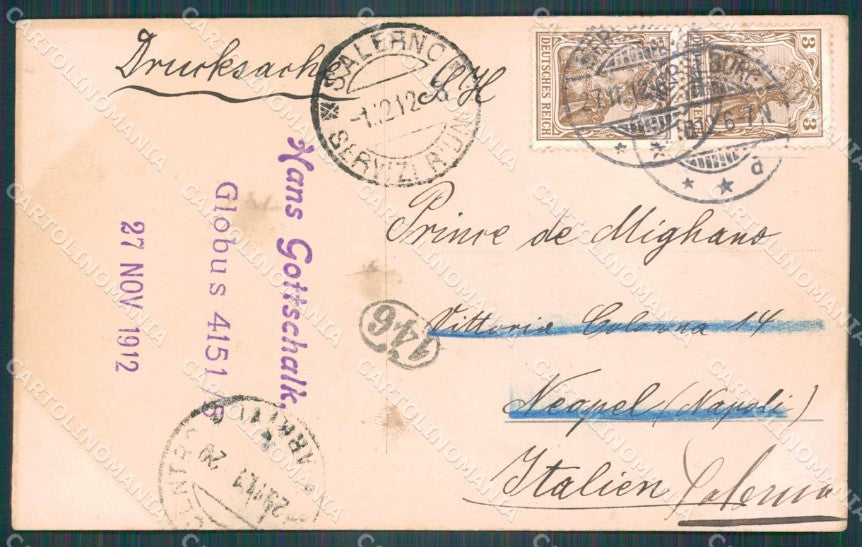 Drucksache
SALERNO
1.12.12
DEUTSCHES REICH
3
3
Hans Gottschalk,
Globus 4151/6
27 NOV 1912
Prince de Mighano
146
Vittoria Colonna 14
Neapel (Napoli)
Italien
CARTOLINOMANIA